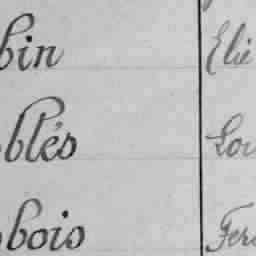 bin Elie
blés Lou
bois Fer